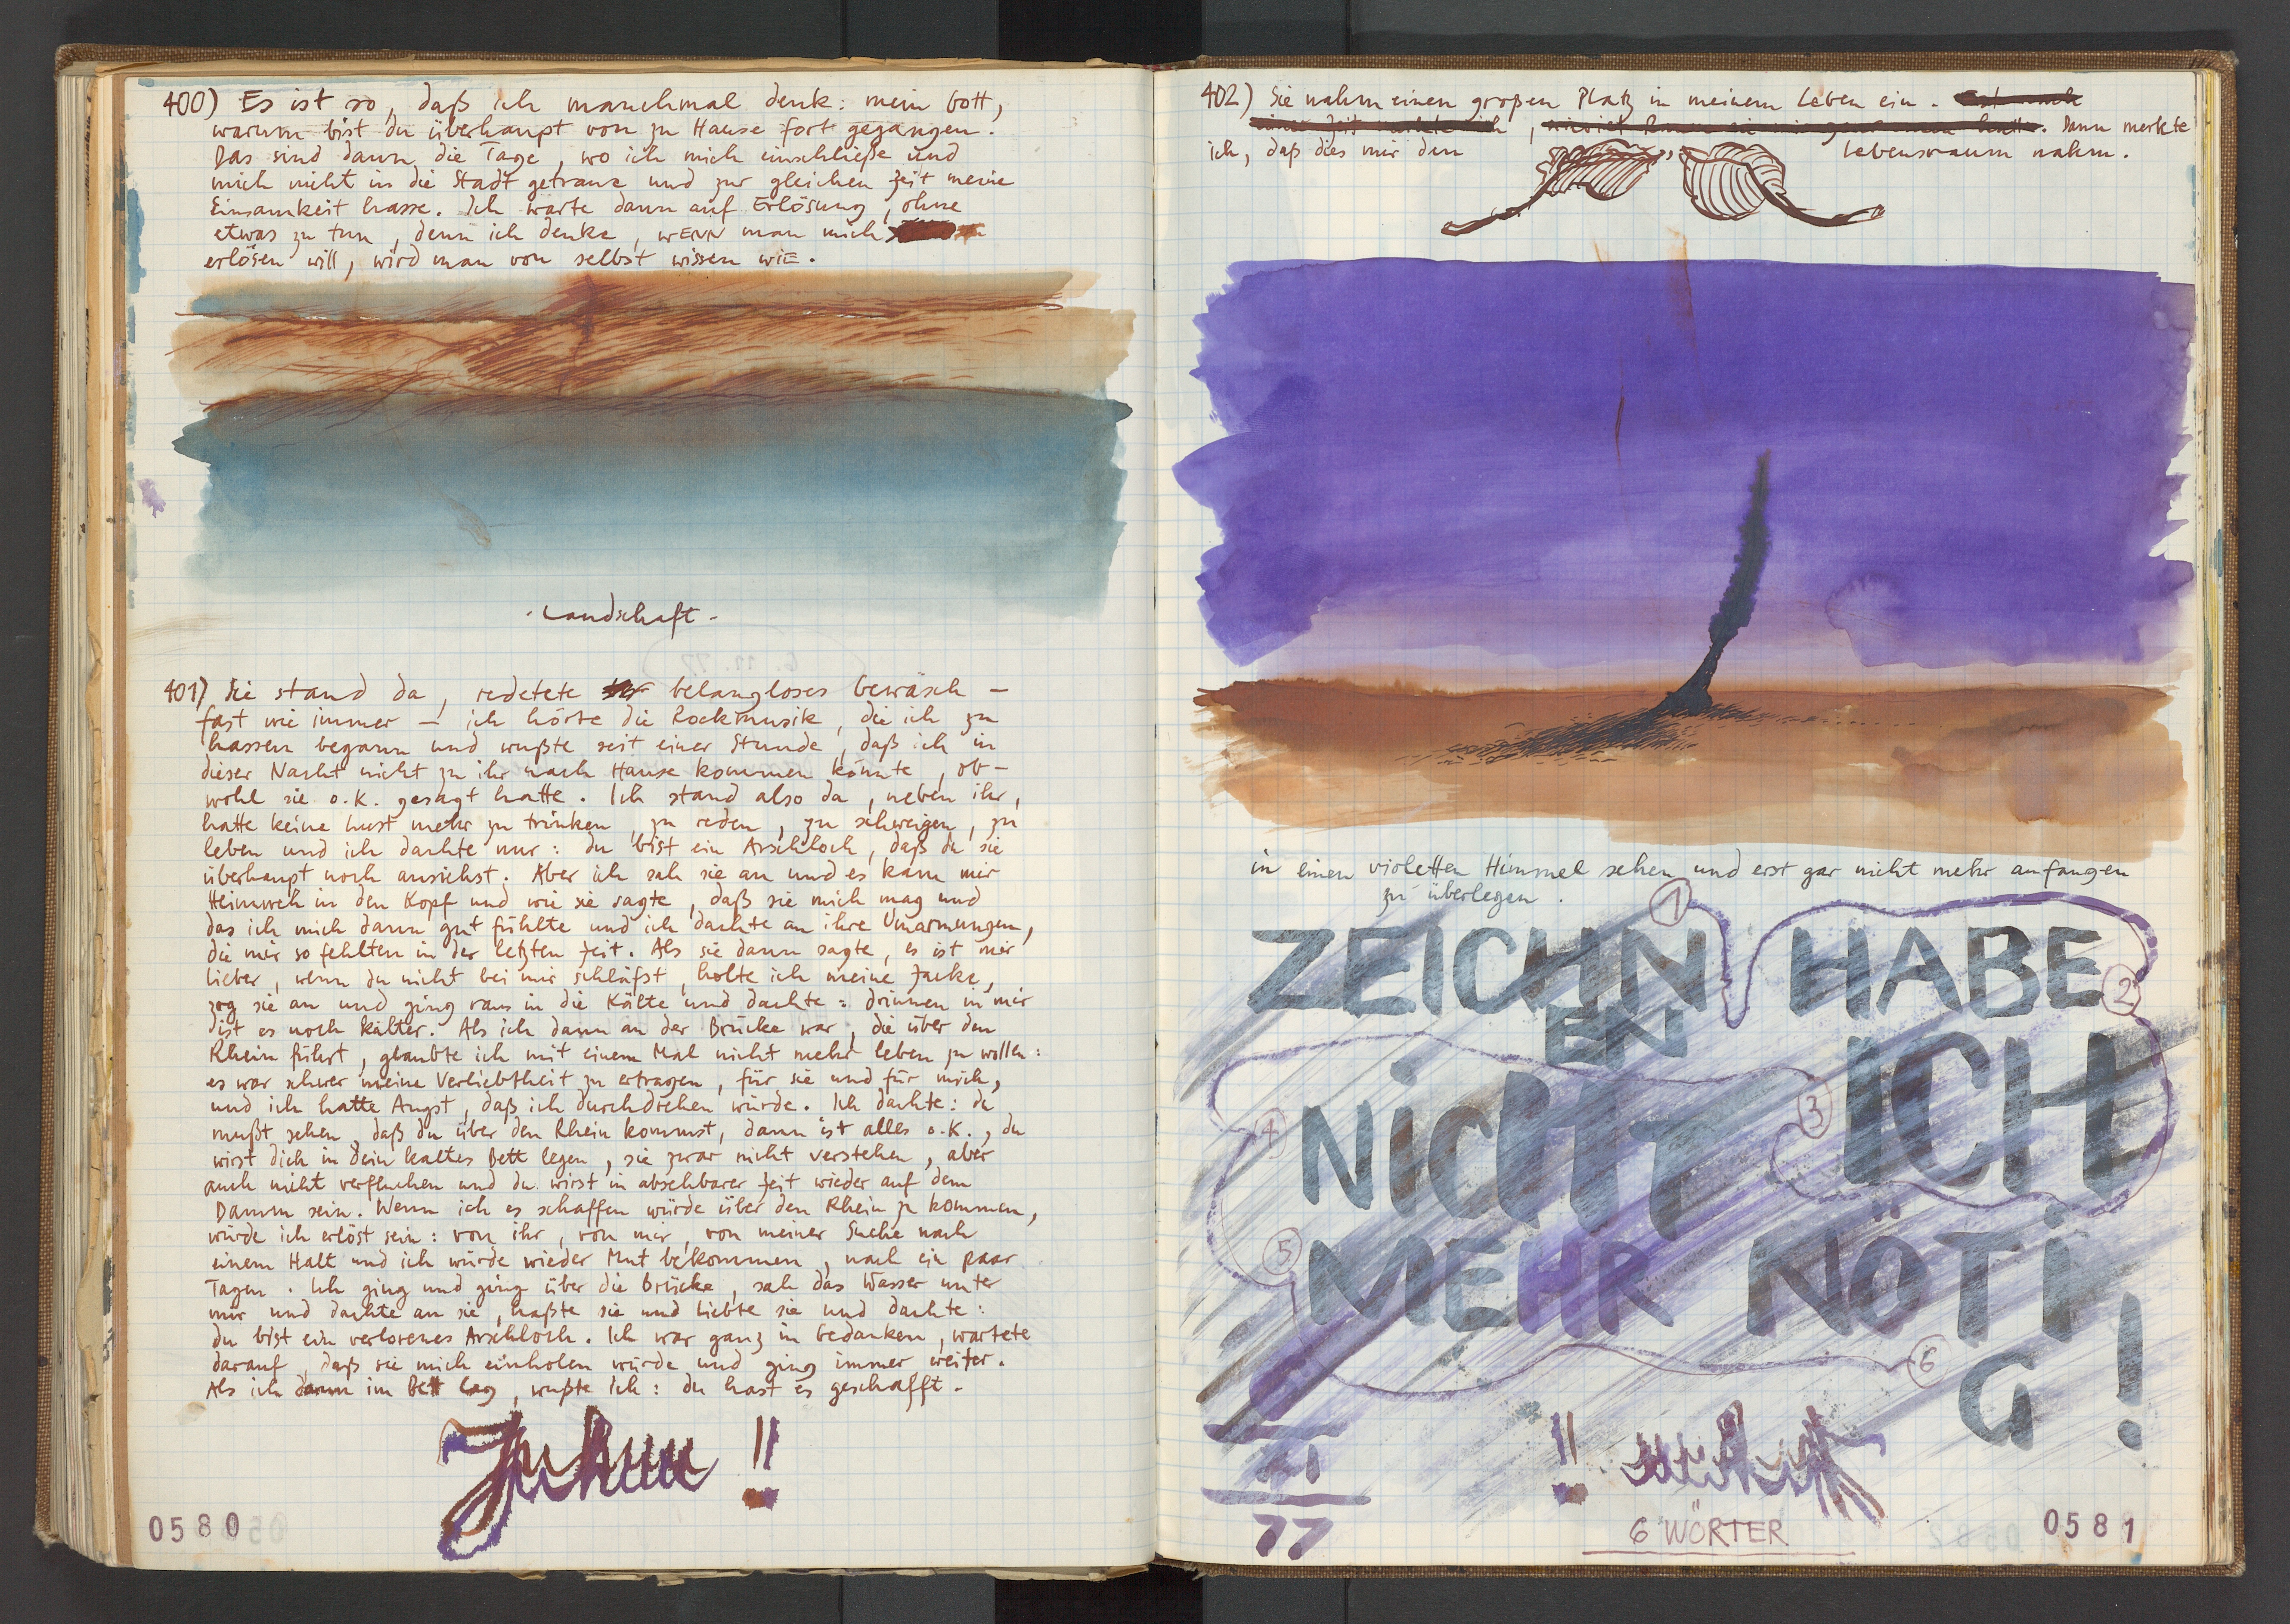 400) Es ist so, daß ich manchmal denk: mein Gott,
warum bist du überhaupt von zu Hause fort gegangen.
Das sind dann die Tage, wo ich mich einschließe und
mich nicht in die Stadt getraue und zur gleichen Zeit meine
Einsamkeit hasse. Ich warte dann auf Erlösung, ohne
etwas zu tun, denn ich denke, WENN man mich
erlösen will, wird man von selbst wissen wiE.
- Landschaft -
401) Sie stand da, redetete belangloses Gewäsch -
fast wie immer - ich hörte die Rockmusik, die ich zu
hassen begann und wußte seit einer Stunde, daß ich in
dieser Nacht nicht zu ihr nach Hause kommen könnte, ob-
wohl sie o.k. gesagt hatte. Ich stand also da, neben ihr,
hatte keine Lust mehr zu trinken, zu reden, zu schweigen, zu
leben und ich dachte nur: du bist ein Arschloch, daß du sie
überhaupt noch ansiehst. Aber ich sah sie an und es kam mir
Heimweh in den Kopf und wie sie sagte, daß sie mich mag und
das ich mich dann gut fühlte und ich dachte an ihre Umarmungen,
die mir so fehlten in der letzten Zeit. Als sie dann sagte, es ist mir
lieber, wenn du nicht bei mir schläfst, holte ich meine Jacke,
zog sie an und ging raus in die Kälte und dachte: drinnen in mir
ist es noch kälter. Als ich dann an der Brücke war, die über den
Rhein führt, glaubte ich mit einem Mal nicht mehr leben zu wollen:
es war schwer meine Verliebtheit zu ertragen, für sie und für mich,
und ich hatte Angst, daß ich durchdrehen würde. Ich dachte: du
mußt sehen, daß du über den Rhein kommst, dann ist alles o.k., du
wirst dich in dein kaltes Bett legen, sie zwar nicht verstehen, aber
auch nicht verfluchen und du wirst in absehbarer Zeit wieder auf dem
Damm sein. Wenn ich es schaffen würde über den Rhein zu kommen,
würde ich erlöst sein: von ihr, von mir, von meiner Suche nach
einem Halt und ich würde wieder Mut bekommen, nach ein paar
Tagen. Ich ging und ging über die Brücke, sah das Wasser unter
mir und dachte an sie, haßte sie und liebte sie und dachte:
du bist ein verlorenes Arschloch. Ich war ganz in Gedanken, wartete
darauf, daß sie mich einholen würde und ging immer weiter.
Als ich dann im Bett lag, wußte ich: du hast es geschafft.
!!
0580
402) Sie nahm einen großen Platz in meinem Leben ein.
Dann merkte
ich, daß dies mir den Lebensraum nahm.
in einen violetten Himmel sehen und erst gar nicht mehr anfangen
zu überlegen.
1
ZEICHN HABE
EN
2
ICH
3
4
NICHT
5
MEHR NÖTI
G!
6
!!
77
6 WÖRTER
0581